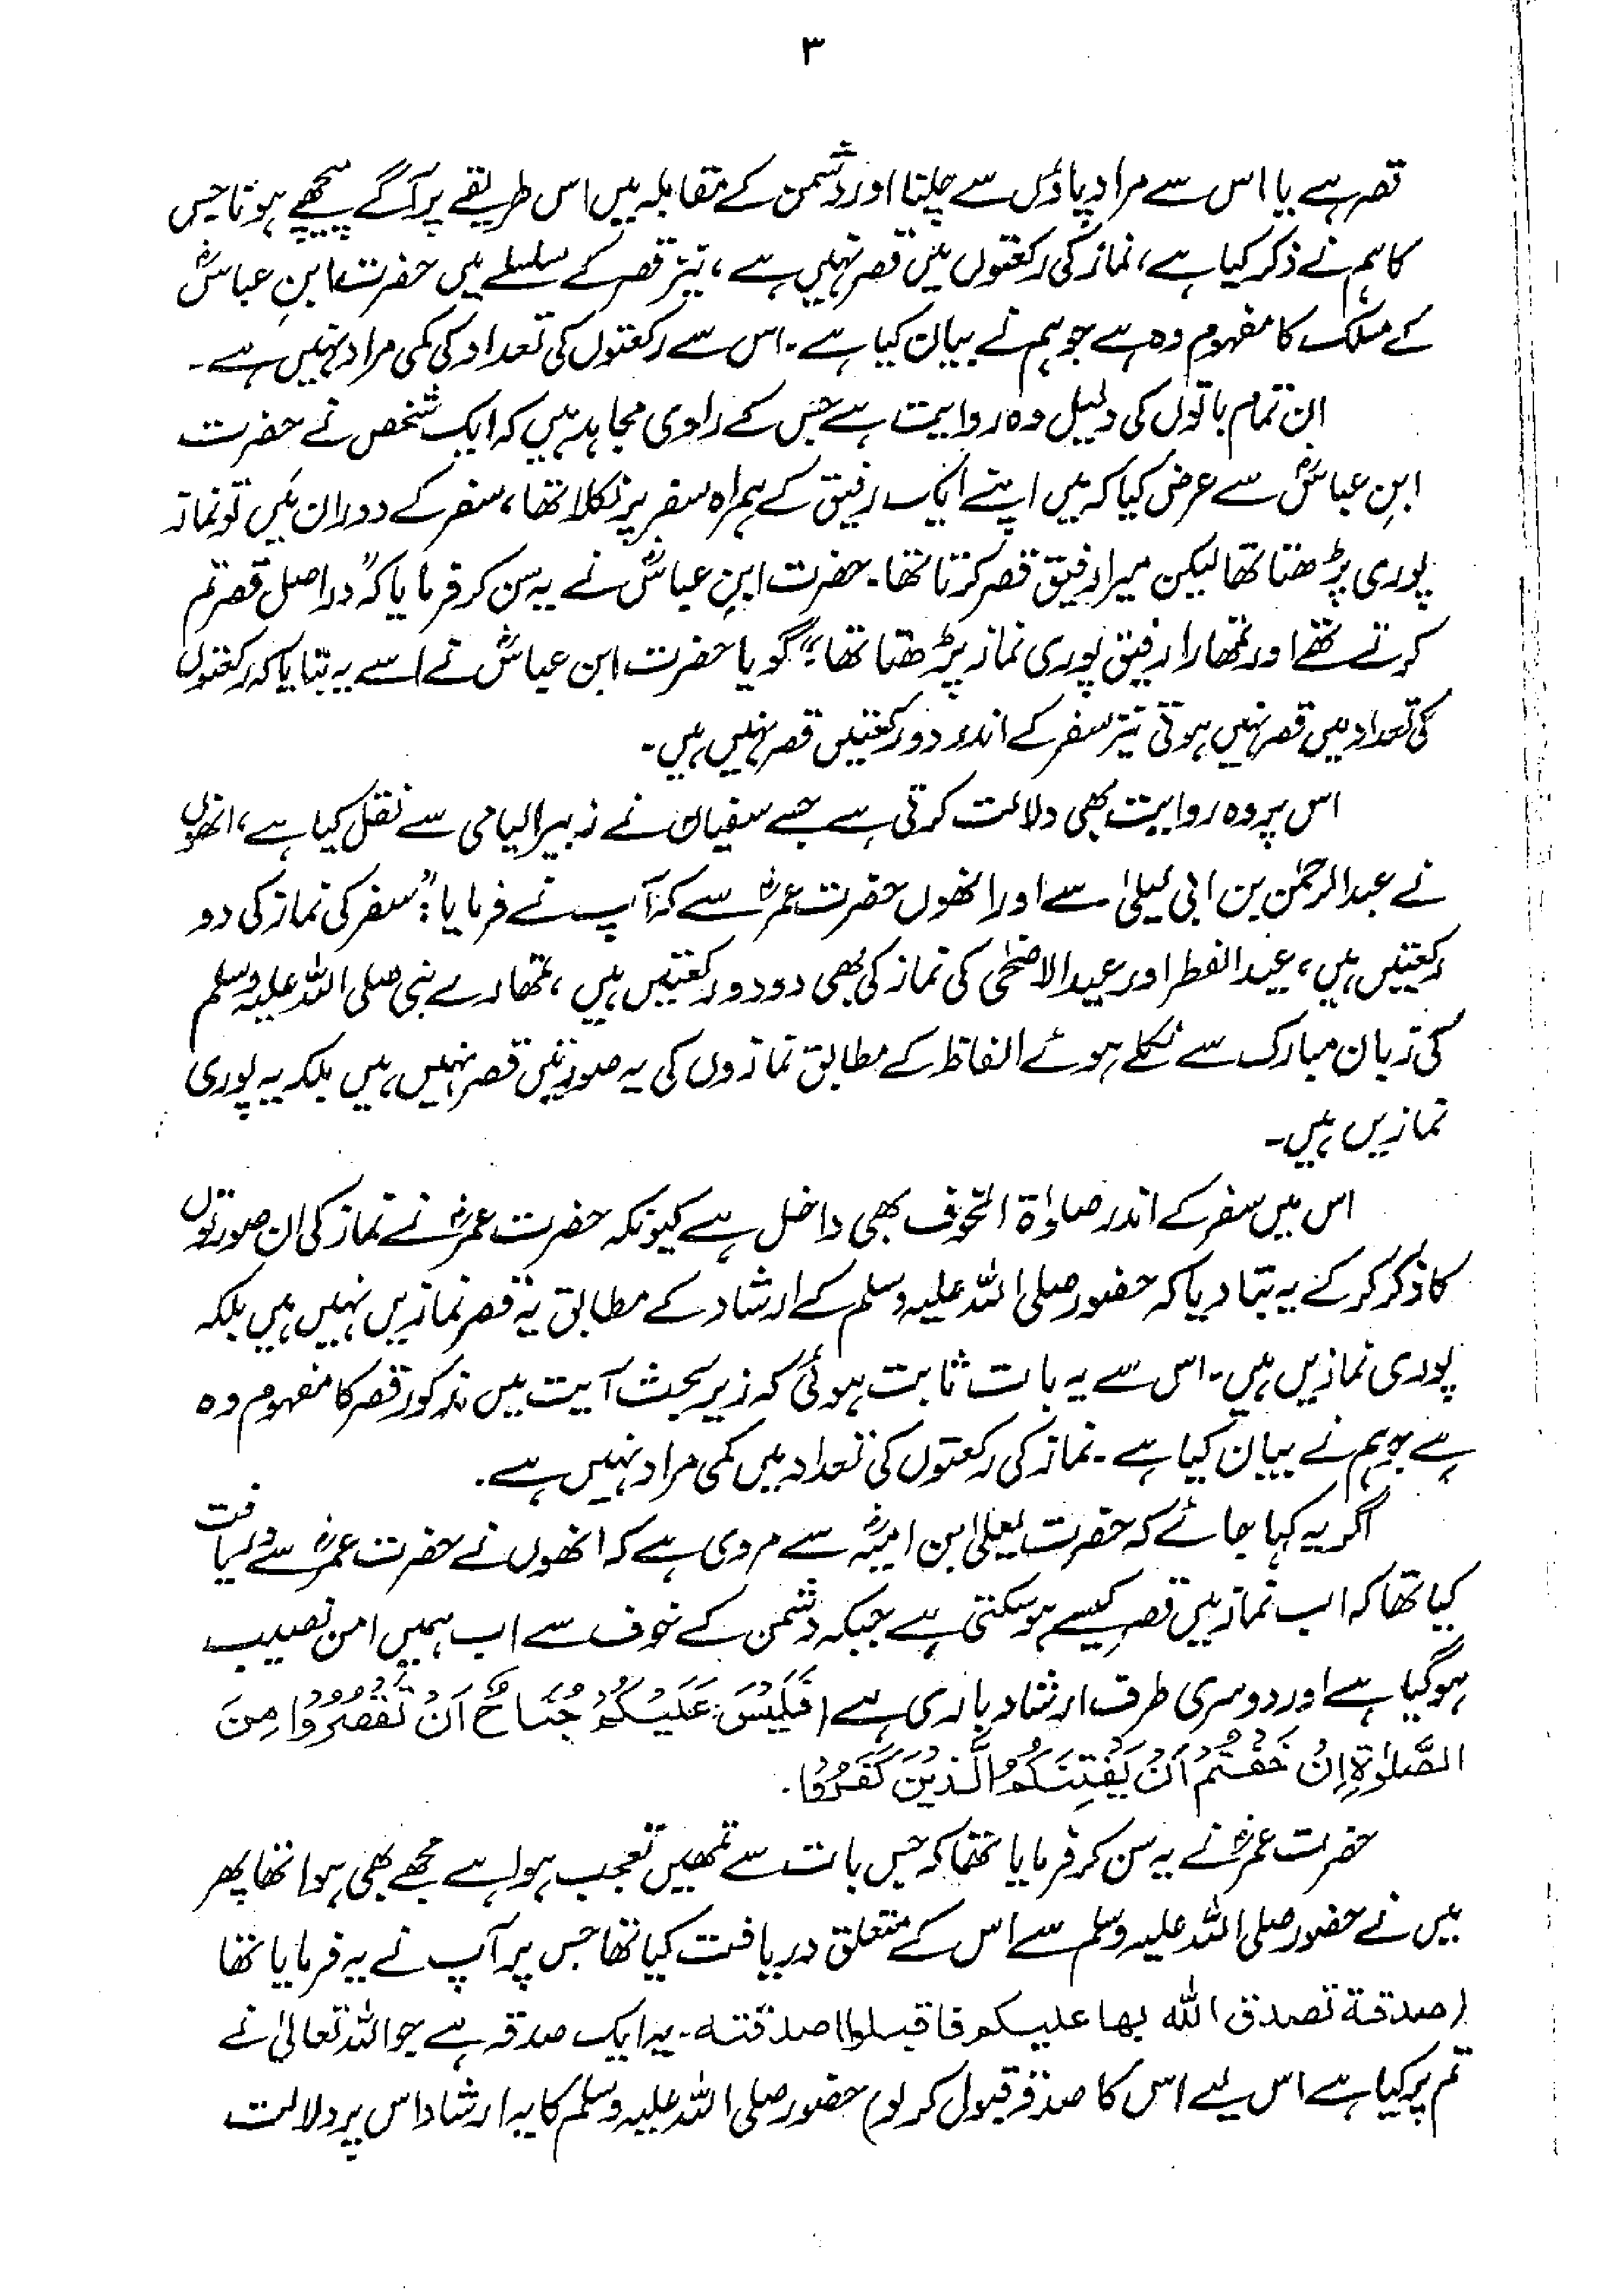 ۳
قصر ہے یا اس سے مراد پاؤں سے چلنا اور دشمن کے مقابلہ میں اس طریقے پر آگے پیچھے ہونا جیس
کا ہم نے ذکر کیا ہے، نماز کی رکعتوں میں قصر نہیں ہے، نیز قصر کے سلسلے میں حضرت ابنِ عباسؓ
کے مسلک کا مفہوم وہ ہے جو ہم نے بیان کیا ہے۔ اس سے رکعتوں کی تعداد کی کمی مراد نہیں ہے۔
ان تمام باتوں کی دلیل وہ روایت ہے جس کے راوی مجاہد ہیں کہ ایک شخص نے حضرت
ابنِ عباسؓ سے عرض کیا کہ میں اپنے ایک رفیق کے ہمراہ سفر پر نکلا تھا، سفر کے دوران میں تو نماز
پوری پڑھتا تھا لیکن میرا رفیق قصر کرتا تھا۔ حضرت ابنِ عباسؓ نے یہ سن کر فرمایا کہ "دراصل قصر تم
کرتے تھے اور تمھارا رفیق پوری نماز پڑھتا تھا" گویا حضرت ابن عباسؓ نے اسے یہ بتایا کہ رکعتوں
کی تعداد میں قصر نہیں ہوتی نیز سفر کے اندر دو رکعتیں قصر نہیں ہیں۔
اس پر وہ روایت بھی دلالت کرتی ہے جسے سفیان نے زبیر الیامی سے نقل کیا ہے، انھوں
نے عبدالرحمٰن بن ابی لیلیٰ سے اور انھوں حضرت عمرؓ سے کہ آپ نے فرمایا: "سفر کی نماز کی دو
رکعتیں ہیں، عید الفطر اور عید الاضحٰی کی نماز کی بھی دو دو رکعتیں ہیں، تمھارے نبی صلی اللہ علیہ وسلم
کی زبان مبارک سے نکلے ہوئے الفاظ کے مطابق نمازوں کی یہ صورتیں قصر نہیں ہیں بلکہ یہ پوری
نمازیں ہیں۔
اس میں سفر کے اندر صلوٰۃ الخوف بھی داخل ہے کیونکہ حضرت عمرؓ نے نماز کی ان صورتوں
کا ذکر کر کے یہ بتا دیا کہ حضور صلی اللہ علیہ وسلم کے ارشاد کے مطابق یہ قصر نمازیں نہیں ہیں بلکہ
پوری نمازیں ہیں۔ اس سے یہ بات ثابت ہوئی کہ زیر بحث آیت میں مذکور قصر کا مفہوم وہ
ہے جو ہم نے بیان کیا ہے۔ نماز کی رکعتوں کی تعداد میں کمی مراد نہیں ہے۔
اگر یہ کہا جائے کہ حضرت یعلیٰ ابن امیہؓ سے مروی ہے کہ انھوں نے حضرت عمرؓ سے دریافت
کیا تھا کہ اب نماز میں قصر کیسے ہو سکتی ہے جبکہ دشمن کے خوف سے اب ہمیں امن نصیب
ہو گیا ہے اور دوسری طرف ارشاد باری ہے (فَلَيْسَ عَلَيْكُمْ جُنَاحٌ اَنْ تَقْصُرُوْا مِنَ
الصَّلٰوةِ اِنْ خِفْتُمْ اَنْ يَفْتِنَكُمُ الَّذِيْنَ كَفَرُوْا۔
حضرت عمرؓ نے یہ سن کر فرمایا تھا کہ جس بات سے تمھیں تعجب ہوا ہے مجھے بھی ہوا تھا پھر
میں نے حضور صلی اللہ علیہ وسلم سے اس کے متعلق دریافت کیا تھا جس پر آپ نے یہ فرمایا تھا
(صدقة تصدق الله بها عليكم فاقبلوا صدقته۔ یہ ایک صدقہ ہے جو اللہ تعالیٰ نے
تم پر کیا ہے اس لیے اس کا صدقہ قبول کر لو) حضور صلی اللہ علیہ وسلم کا یہ ارشاد اس پر دلالت